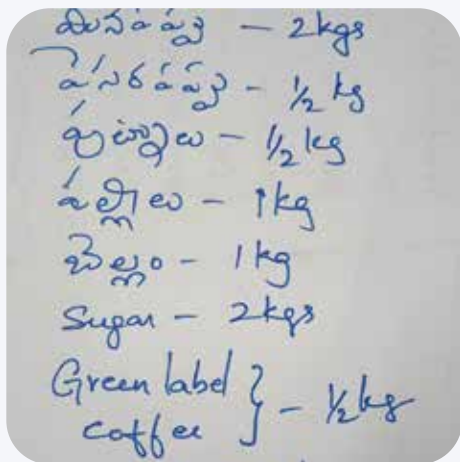 మినపప్పు - 2kgs
పెసరపప్పు - 1/2 kg
పుట్నాలు - 1/2 kg
పల్లీలు - 1kg
బెల్లం - 1kg
Sugar - 2kgs
Green label } - 1/2 kg
coffee